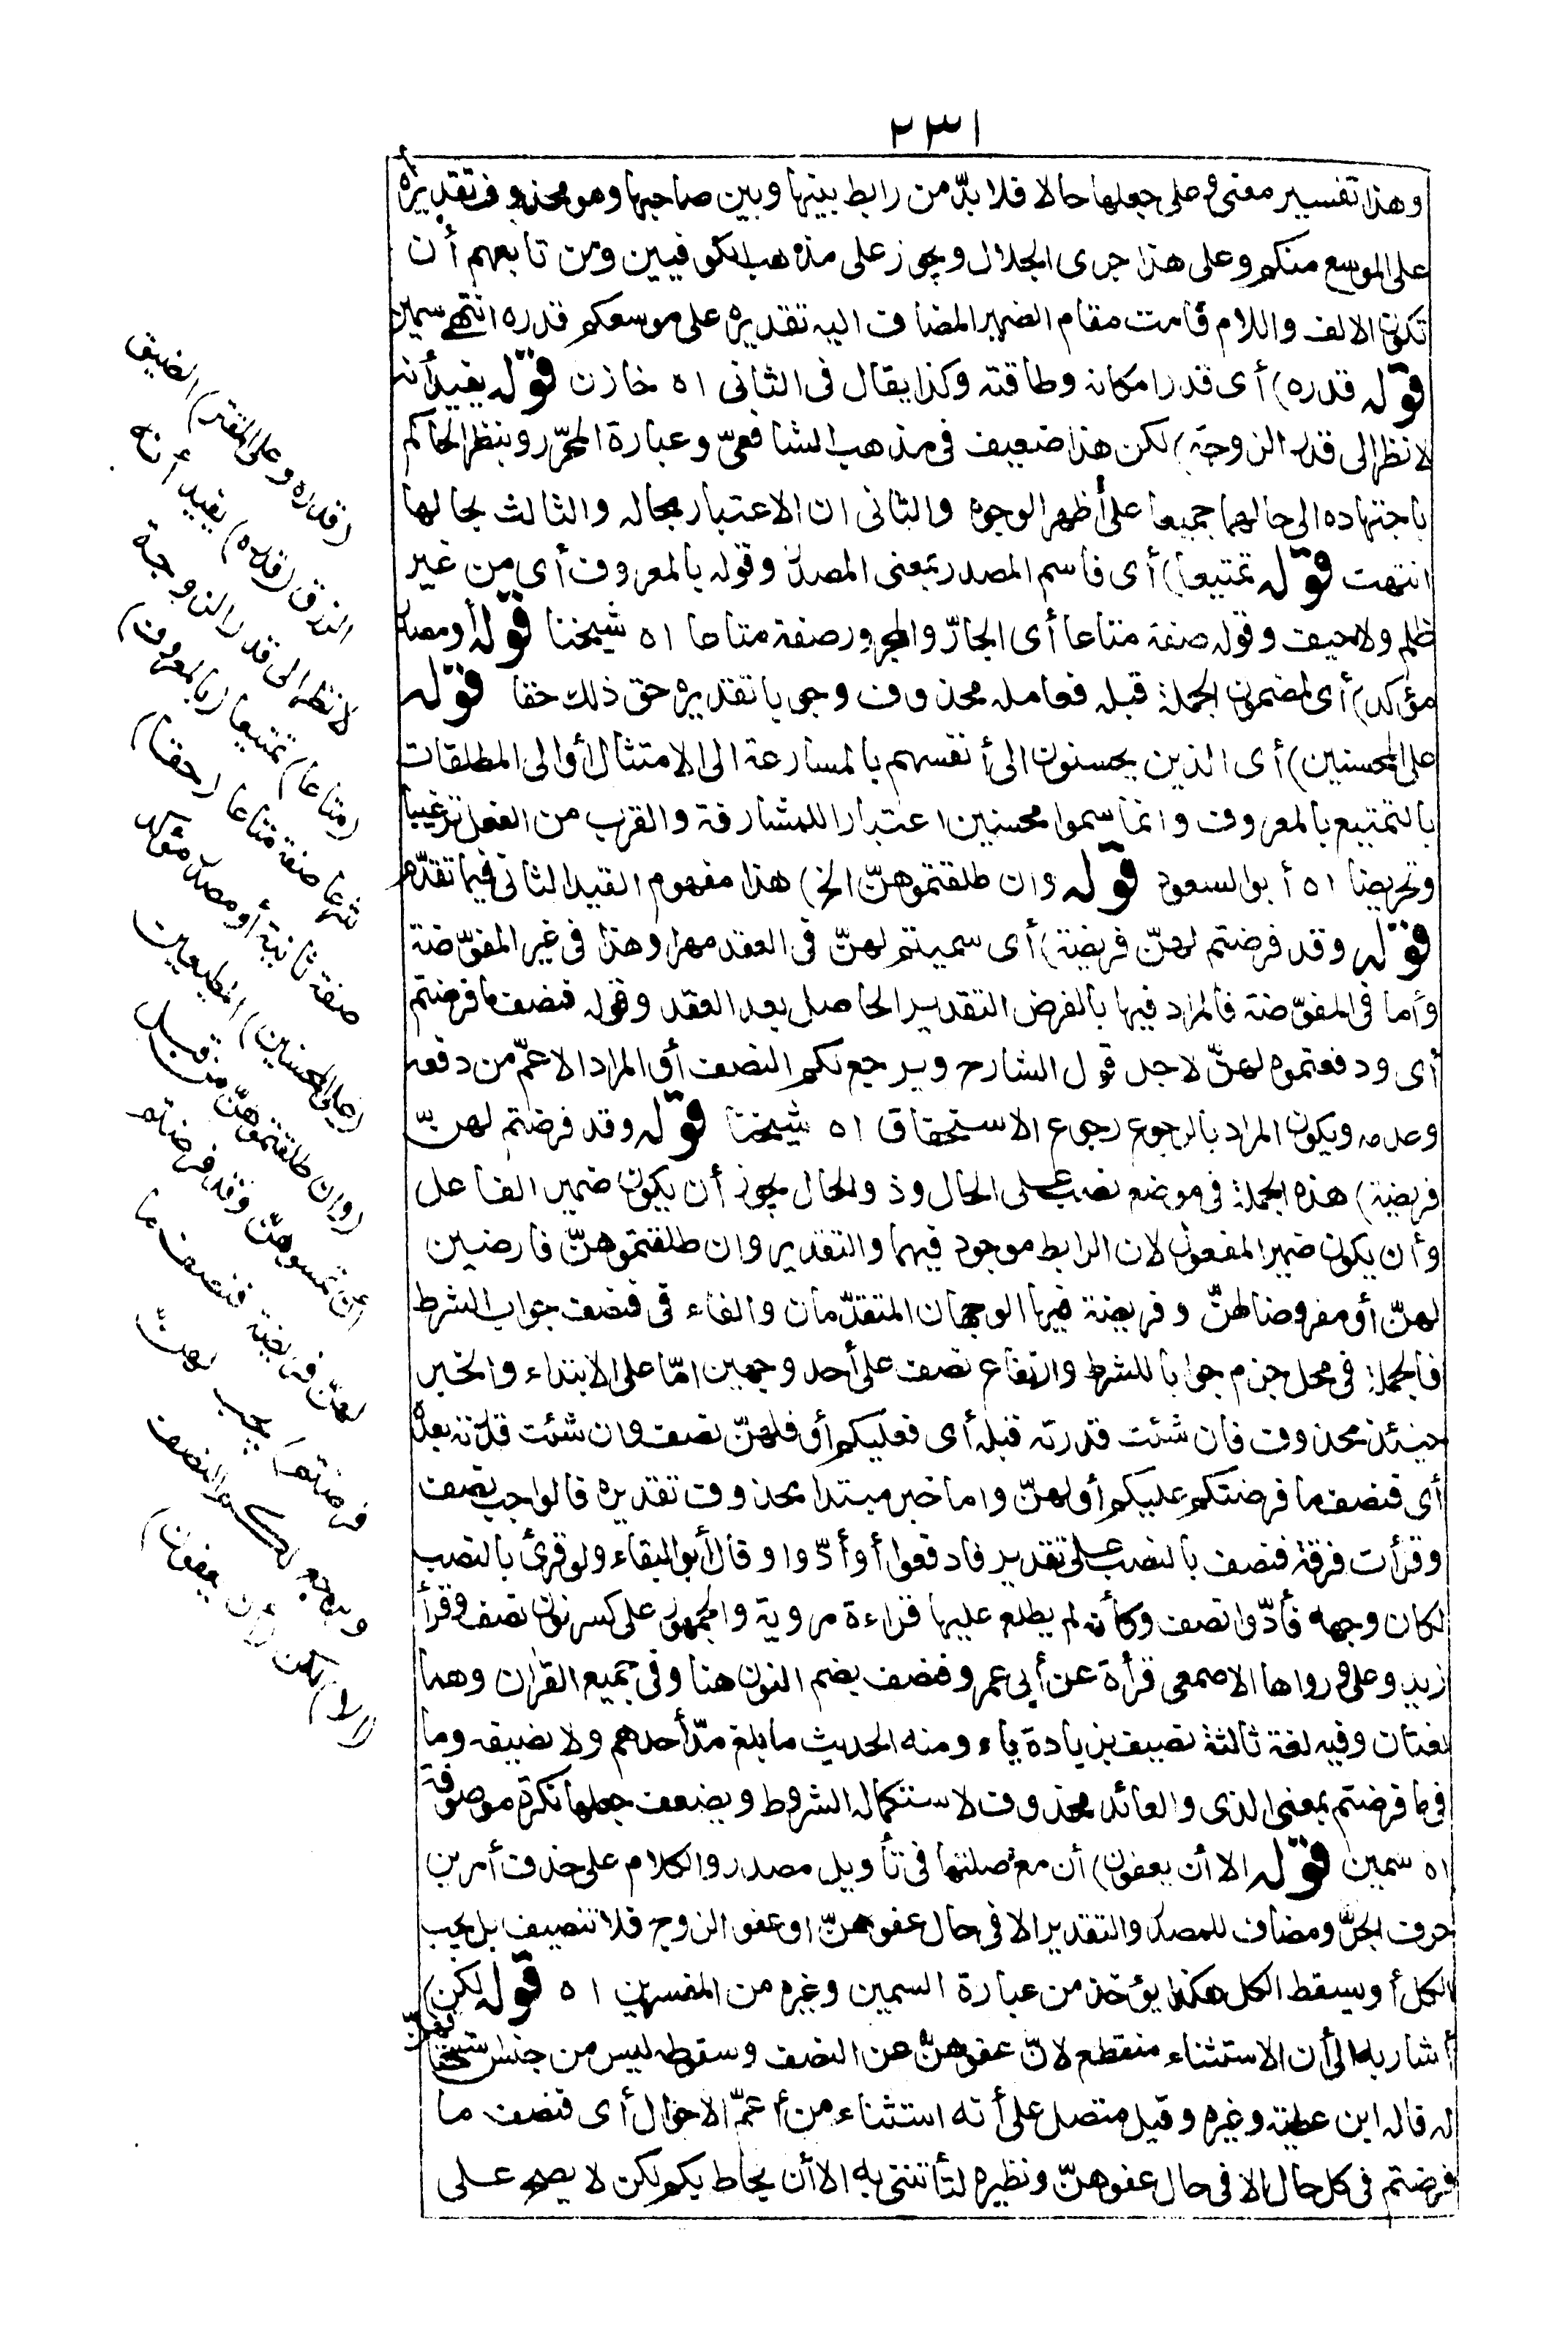 ٢٣١
وهذا تفسير معنى وعلى جعلها حالا فلا بدّ من رابط بينها وبين صاحبها وهو محذوف تقديره
على الموسع منكم وعلى هذا جرى الجلال ويجوز على مذهب الكوفيين ومن تابعهم أن
تكون الالف واللام قامت مقام الضمير المضاف اليه تقديره على موسعكم قدره انتهى سمين
قوله قدره) أى قدر امكانه وطاقته وكذا يقال فى الثانى اه خازن قوله يفيد أنه
لا نظر الى قدر الزوجة) لكن هذا ضعيف فى مذهب الشافعىّ وعبارة المحرّر وينظر الحاكم
باجتهاده الى حالهما جميعا على أظهر الوجوه والثانى ان الاعتبار بحاله والثالث بحالها
انتهت قوله تمتيعا) أى فاسم المصدر بمعنى المصدر وقوله بالمعروف أى من غير
ظلم ولا حيف وقوله صفة متاعا أى الجارّ والمجرور صفة متاعا اه شيخنا قوله أو مصدر
مؤكد) أى لمضمون الجملة قبله فعامله محذوف وجوبا تقديره حق ذلك حقا قوله
على المحسنين) أى الذين يحسنون الى أنفسهم بالمسارعة الى الامتثال أو الى المطلقات
بالتمتيع بالمعروف وانما سموا محسنين اعتبارا للمشارفة والقرب من الفعل ترغيبا
وتحريضا اه أبو السعود قوله وان طلقتموهنّ الخ) هذا مفهوم القيد الثانى فيما تقدّم
قوله وقد فرضتم لهنّ فريضة) أى سميتم لهنّ فى العقد مهرا وهذا فى غير المفوّضة
وأما فى المفوّضة فالمراد فيها بالفرض التقدير الحاصل بعد العقد وقوله فنصف ما فرضتم
أى ودفعتموه لهنّ لاجل قول الشارح ويرجع لكم النصف أو المراد الاعمّ من دفعه
وعدمه ويكون المراد بالرجوع رجوع الاستحقاق اه شيخنا قوله وقد فرضتم لهنّ
فريضة) هذه الجملة فى موضع نصب على الحال وذو الحال يجوز أن يكون ضمير الفاعل
وأن يكون ضمير المفعول لان الرابط موجود فيهما والتقدير وان طلقتموهنّ فارضين
لهنّ أو مفروضا لهنّ وفريضة فيها الوجهان المتقدّمان والفاء فى فنصف جواب الشرط
فالجملة فى محل جزم جوابا للشرط وارتفاع نصف على أحد وجهين امّا على الابتداء والخبر
حينئذ محذوف فان شئت قدرته قبله أى فعليكم أو فلهنّ نصف وان شئت قدّرته بعده
أى فنصف ما فرضتم عليكم أو لهنّ واما خبر مبتدا محذوف تقديره فالواجب نصف
وقرأت فرقة فنصف بالنصب على تقدير فادفعوا أو أدّوا وقال أبو البقاء ولو قرئ بالنصب
لكان وجهه فأدّوا نصف وكأنه لم يطلع عليها قراءة مروية والجمهور على كسر نون نصف وقرأ
زيد وعلى ورواها الاصمعى قرأة عن أبى عمرو فنصف بضم النون هنا وفى جميع القرآن وهما
لغتان وفيه لغة ثالثة نصيف بزيادة ياء ومنه الحديث ما بلغ مدّ أحدهم ولا نصيفه وما
فى ما فرضتم بمعنى الذى والعائد محذوف لاستكمال الشروط ويضعف جعلها نكرة موصوفة
اه سمين قوله الا أن يعفون) أن مع صلتها فى تأويل مصدر والكلام على حذف أمرين
حرف الجرّ ومضاف للمصدر والتقدير الا فى حال عفوهنّ او عفو الزوج فلا تنصيف بل يجب
الكل أو يسقط الكل هكذا يؤخذ من عبارة السمين وغيره من المفسرين اه قوله لكن)
أشار به الى أن الاستثناء منقطع لانّ عفوهنّ عن النصف وسقوطه ليس من جنس استحقاقهنّ
له قاله ابن عطية وغيره وقيل متصل على أنه استثناء من أعمّ الاحوال أى فنصف ما
فرضتم فى كل حال الا فى حال عفوهنّ ونظيره لتأتننى به الا أن يحاط بكم لكن لا يصح على
(قدره وعلى المقتر) الضيق
الرزق (قدره) يفيد أنه
لا نظر الى قدر الزوجة
(متاعا) تمتيعا (بالمعروف)
شرعا صفة متاعا (حقا)
صفة ثانية أو مصدر مؤكد
(على المحسنين) المطيعين
(وان طلقتموهنّ من قبل
أن تمسوهنّ وقد فرضتم
لهنّ فريضة فنصف ما
فرضتم) يجب لهنّ
ويرجع لكم النصف
(الا) لكن (أن يعفون)